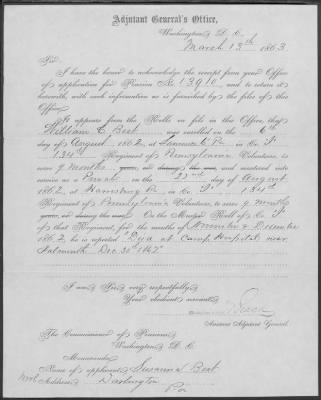 Adjutant General's Office,
Washington, D. C.
March 13th 1863
Sir:
I have the honor to acknowledge the receipt from your Office
of application for Pension No. 13910, and to return it
herewith, with such information as is furnished by the files of this
Office.
It appears from the Rolls on file in this Office, that
William E. Best was enrolled on the 6th
day of August 1862, at in Co. "F"
134th Regiment of Pennsylvania Volunteers, to
serve 9 months years, or during the war, and mustered into
service as a Private on the 22nd day of August
1862, at Harrisburg Pa, in Co. "F" 134th
Regiment of Pennsylvania Volunteers, to serve 9 months
years, or during the war. On the Muster Roll of Co. "F"
of that Regiment, for the months of November & December
1862, he is reported "Died at Camp Hospital near
Falmouth Dec 30th 1862"
I am Sir, very respectfully,
Your obedient servant,
Assistant Adjutant General
The Commissioner of Pensions
Washington D. C.
Memoranda
Name of applicant Susanna Best
Address Darlington
Pa